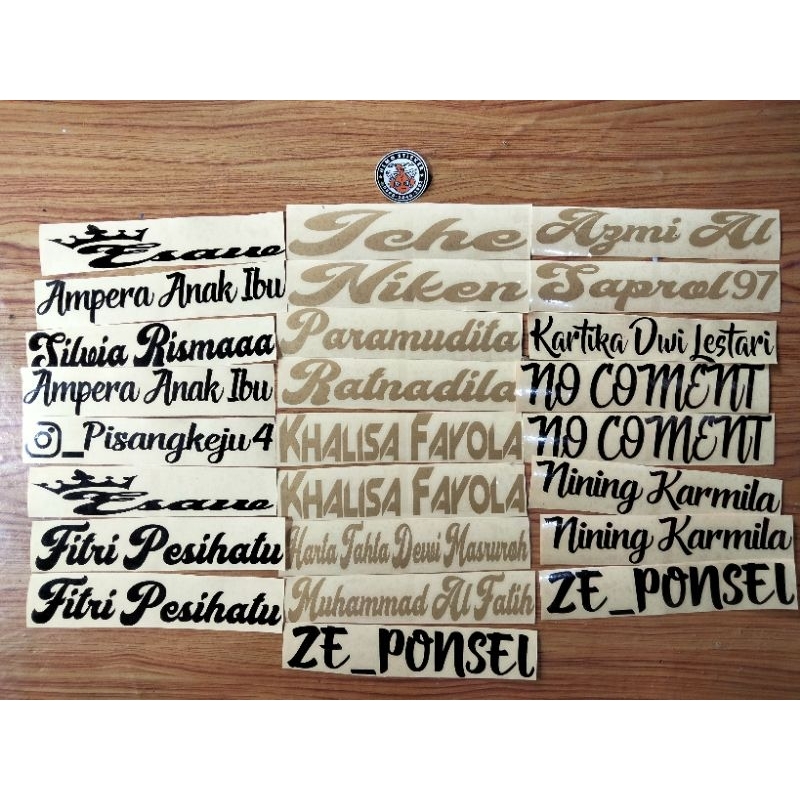 Esaue
Ampera Anak Ibu
Silvia Rismaaa
Ampera Anak Ibu
_Pisangkeju4
Esaue
Fitri Pesihatu
Fitri Pesihatu
Iche
Niken
Paramudita
Ratnadila
KHALISA FAYOLA
KHALISA FAYOLA
Harta Tahta Dewi Masruroh
Muhammad Al Fatih
ZE_PONSEL
Azmi Al
Saprol97
Kartika Dwi Lestari
NO COMENT
NO COMENT
Nining Karmila
Nining Karmila
ZE_PONSEL